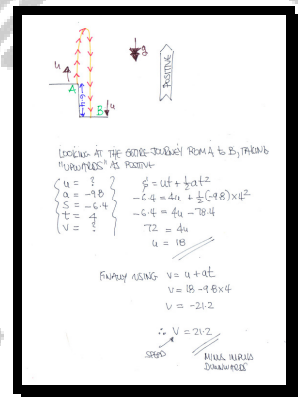 u
g
POSITIVE
A
6.4
B
u
LOOKING AT THE ENTIRE JOURNEY FROM A to B, TAKING
"UPWARDS" AS POSITIVE
u = ?
a = -9.8
S = -6.4
t = 4
V = ?
S = ut + ½at²
-6.4 = 4u + ½(-9.8)×4²
-6.4 = 4u - 78.4
72 = 4u
u = 18
FINALLY USING V = u + at
V = 18 - 9.8×4
V = -21.2
∴ V = 21.2
SPEED
MINUS IMPLIES
DOWNWARDS